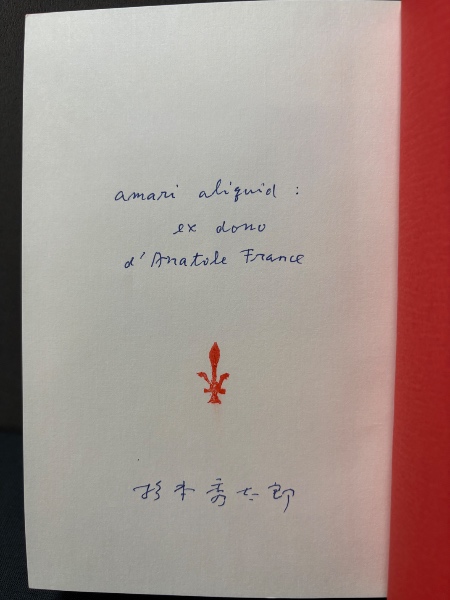 amari aliquid :
ex dono
d'Anatole France
杉本秀太郎